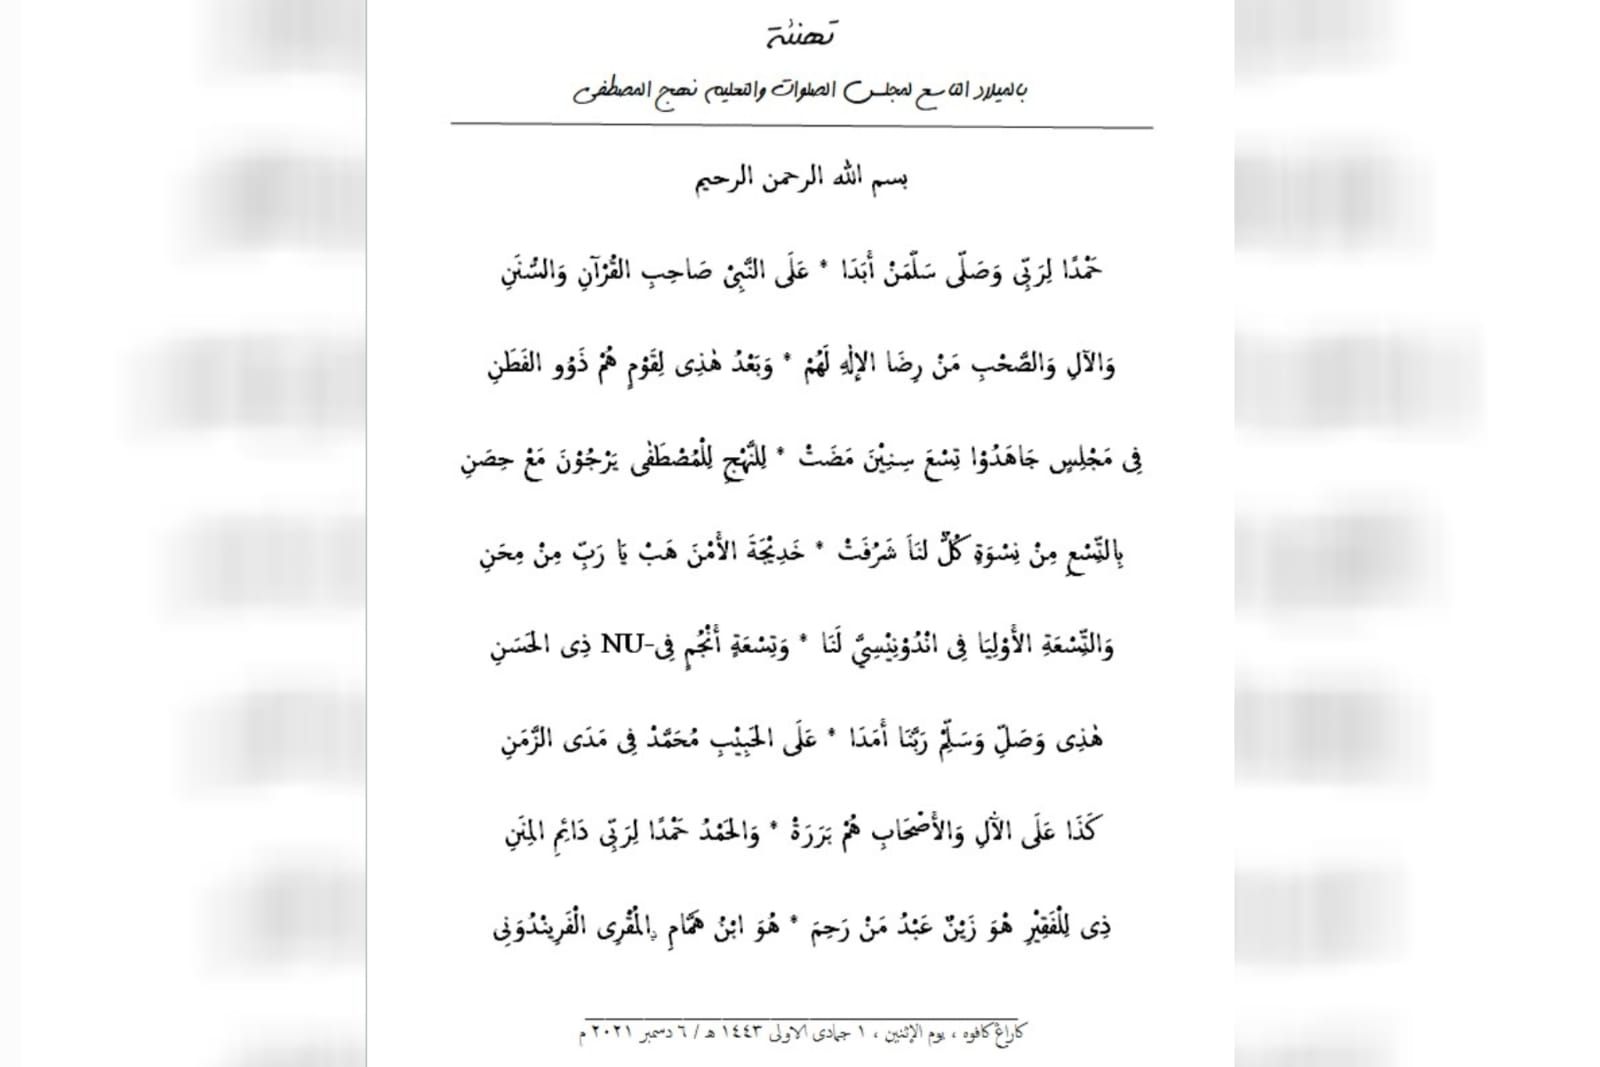 تهنئة
بالميلاد التاسع لمجلس الصلوات والتعليم نهج المصطفى
بسم الله الرحمن الرحيم
حَمْدًا لِرَبِّى وَصَلّى سَلّمَنْ أَبَدَا * عَلَى النَّبِيْ صَاحِبِ القُرْآنِ وَالسُّنَنِ
وَالآلِ وَالصَّحْبِ مَنْ رِضَا الإلٰهِ لَهُمْ * وَبَعْدُ هٰذِى لِقَوْمٍ هُمْ ذَوُو الفَطَنِ
فِى مَجْلِسٍ جَاهَدُوْا تِسْعَ سِنِيْنَ مَضَتْ * لِلنَّهْجِ لِلْمُصْطَفٰى يَرْجُوْنَ مَعْ حِصَنِ
بِالتِّسْعِ مِنْ نِسْوَةٍ كُلٌّ لنَاَ شَرُفَتْ * خَدِيْجَةَ الأَمْنَ هَبْ يَا رَبِّ مِنْ مِحَنِ
وَالتِّسْعَةِ الأَوْلِيَا فِى انْدُوْنِيْسِيَّ لَنَا * وَتِسْعَةٍ أَنْجُمٍ فِى-NU ذِى الحَسَنِ
هٰذِى وَصَلِّ وَسَلِّمْ رَبَّنَا أَمَدَا * عَلَى الحَبِيْبِ مُحَمَّدْ فِى مَدَى الزَّمَنِ
كَذَا عَلَى الآلِ وَالأَصْحَابِ هُمْ بَرَرَةْ * وَالحَمْدُ حَمْدًا لِرَبِّى دَائِمِ المِنَنِ
ذِى لِلْفَقِيْرِ هْوَ زَيْنٌ عَبْدُ مَنْ رَحِمَ * هُوَ ابْنُ هَمَّامِ ۣالْمُقْرِى الْفَرِيْندُوَنِى
كاراڠ كافوه ، يوم الإثنين ، ١ جمادى الاولى ١٤٤٣ ه / ٦ دسمبر ٢٠٢١ م